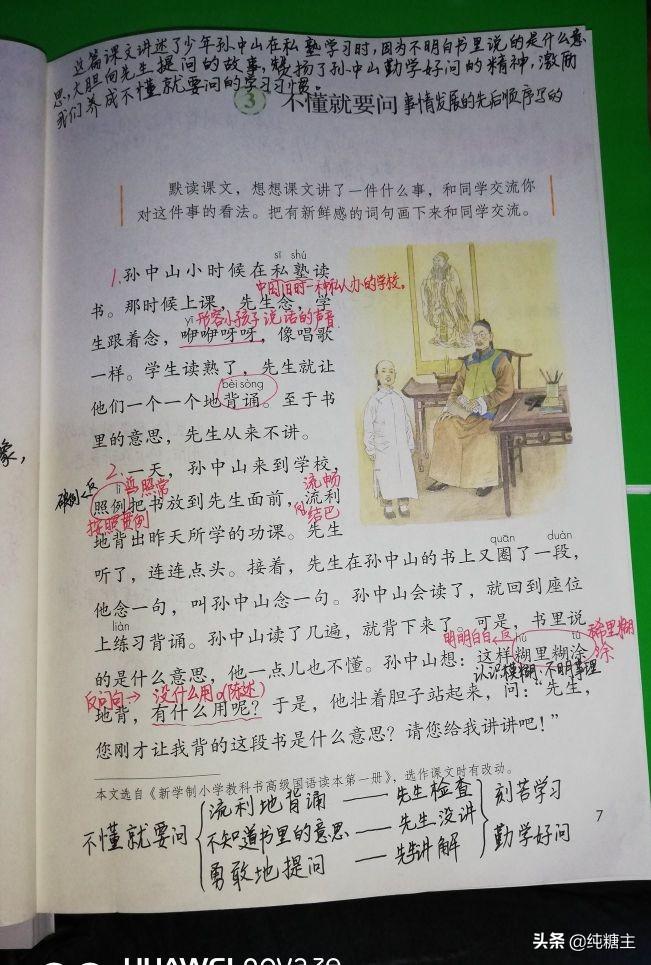 这篇课文讲述了少年孙中山在私塾学习时,因为不明白书里说的是什么意
思,大胆向先生提问的故事,赞扬了孙中山勤学好问的精神,激励
我们养成不懂就要问的学习习惯。
3 不懂就要问 事情发展的先后顺序写的
默读课文,想想课文讲了一件什么事,和同学交流你
对这件事的看法。把有新鲜感的词句画下来和同学交流。
sī shú
1.孙中山小时候在私塾读
中国旧时一种私人办的学校。
书。那时候上课,先生念,学
yī 形容小孩子说话的声音
生跟着念,咿咿呀呀,像唱歌
一样。学生读熟了,先生就让
bèi sòng
他们一个一个地背诵。至于书
里的意思,先生从来不讲。
象,
2.一天,孙中山来到学校,
破例 反 lì 照常 流畅
照例把书放到先生面前,流利
按照惯例 反 结巴
地背出昨天所学的功课。先生
quān duàn
听了,连连点头。接着,先生在孙中山的书上又圈了一段,
他念一句,叫孙中山念一句。孙中山会读了,就回到座位
liàn
上练习背诵。孙中山读了几遍,就背下来了。可是,书里说
明明白白 反 hú tú 稀里糊涂
的是什么意思,他一点儿也不懂。孙中山想:这样糊里糊涂
认识模糊,不明事理
反问句→没什么用。(陈述)
地背,有什么用呢?于是,他壮着胆子站起来,问:“先生,
您刚才让我背的这段书是什么意思?请您给我讲讲吧!”
本文选自《新学制小学教科书高级国语读本第一册》,选作课文时有改动。
流利地背诵 —— 先生检查 刻苦学习
不懂就要问 不知道书里的意思 —— 先生没讲
勇敢地提问 —— 先生讲解 勤学好问
7
头条 @纯糖主